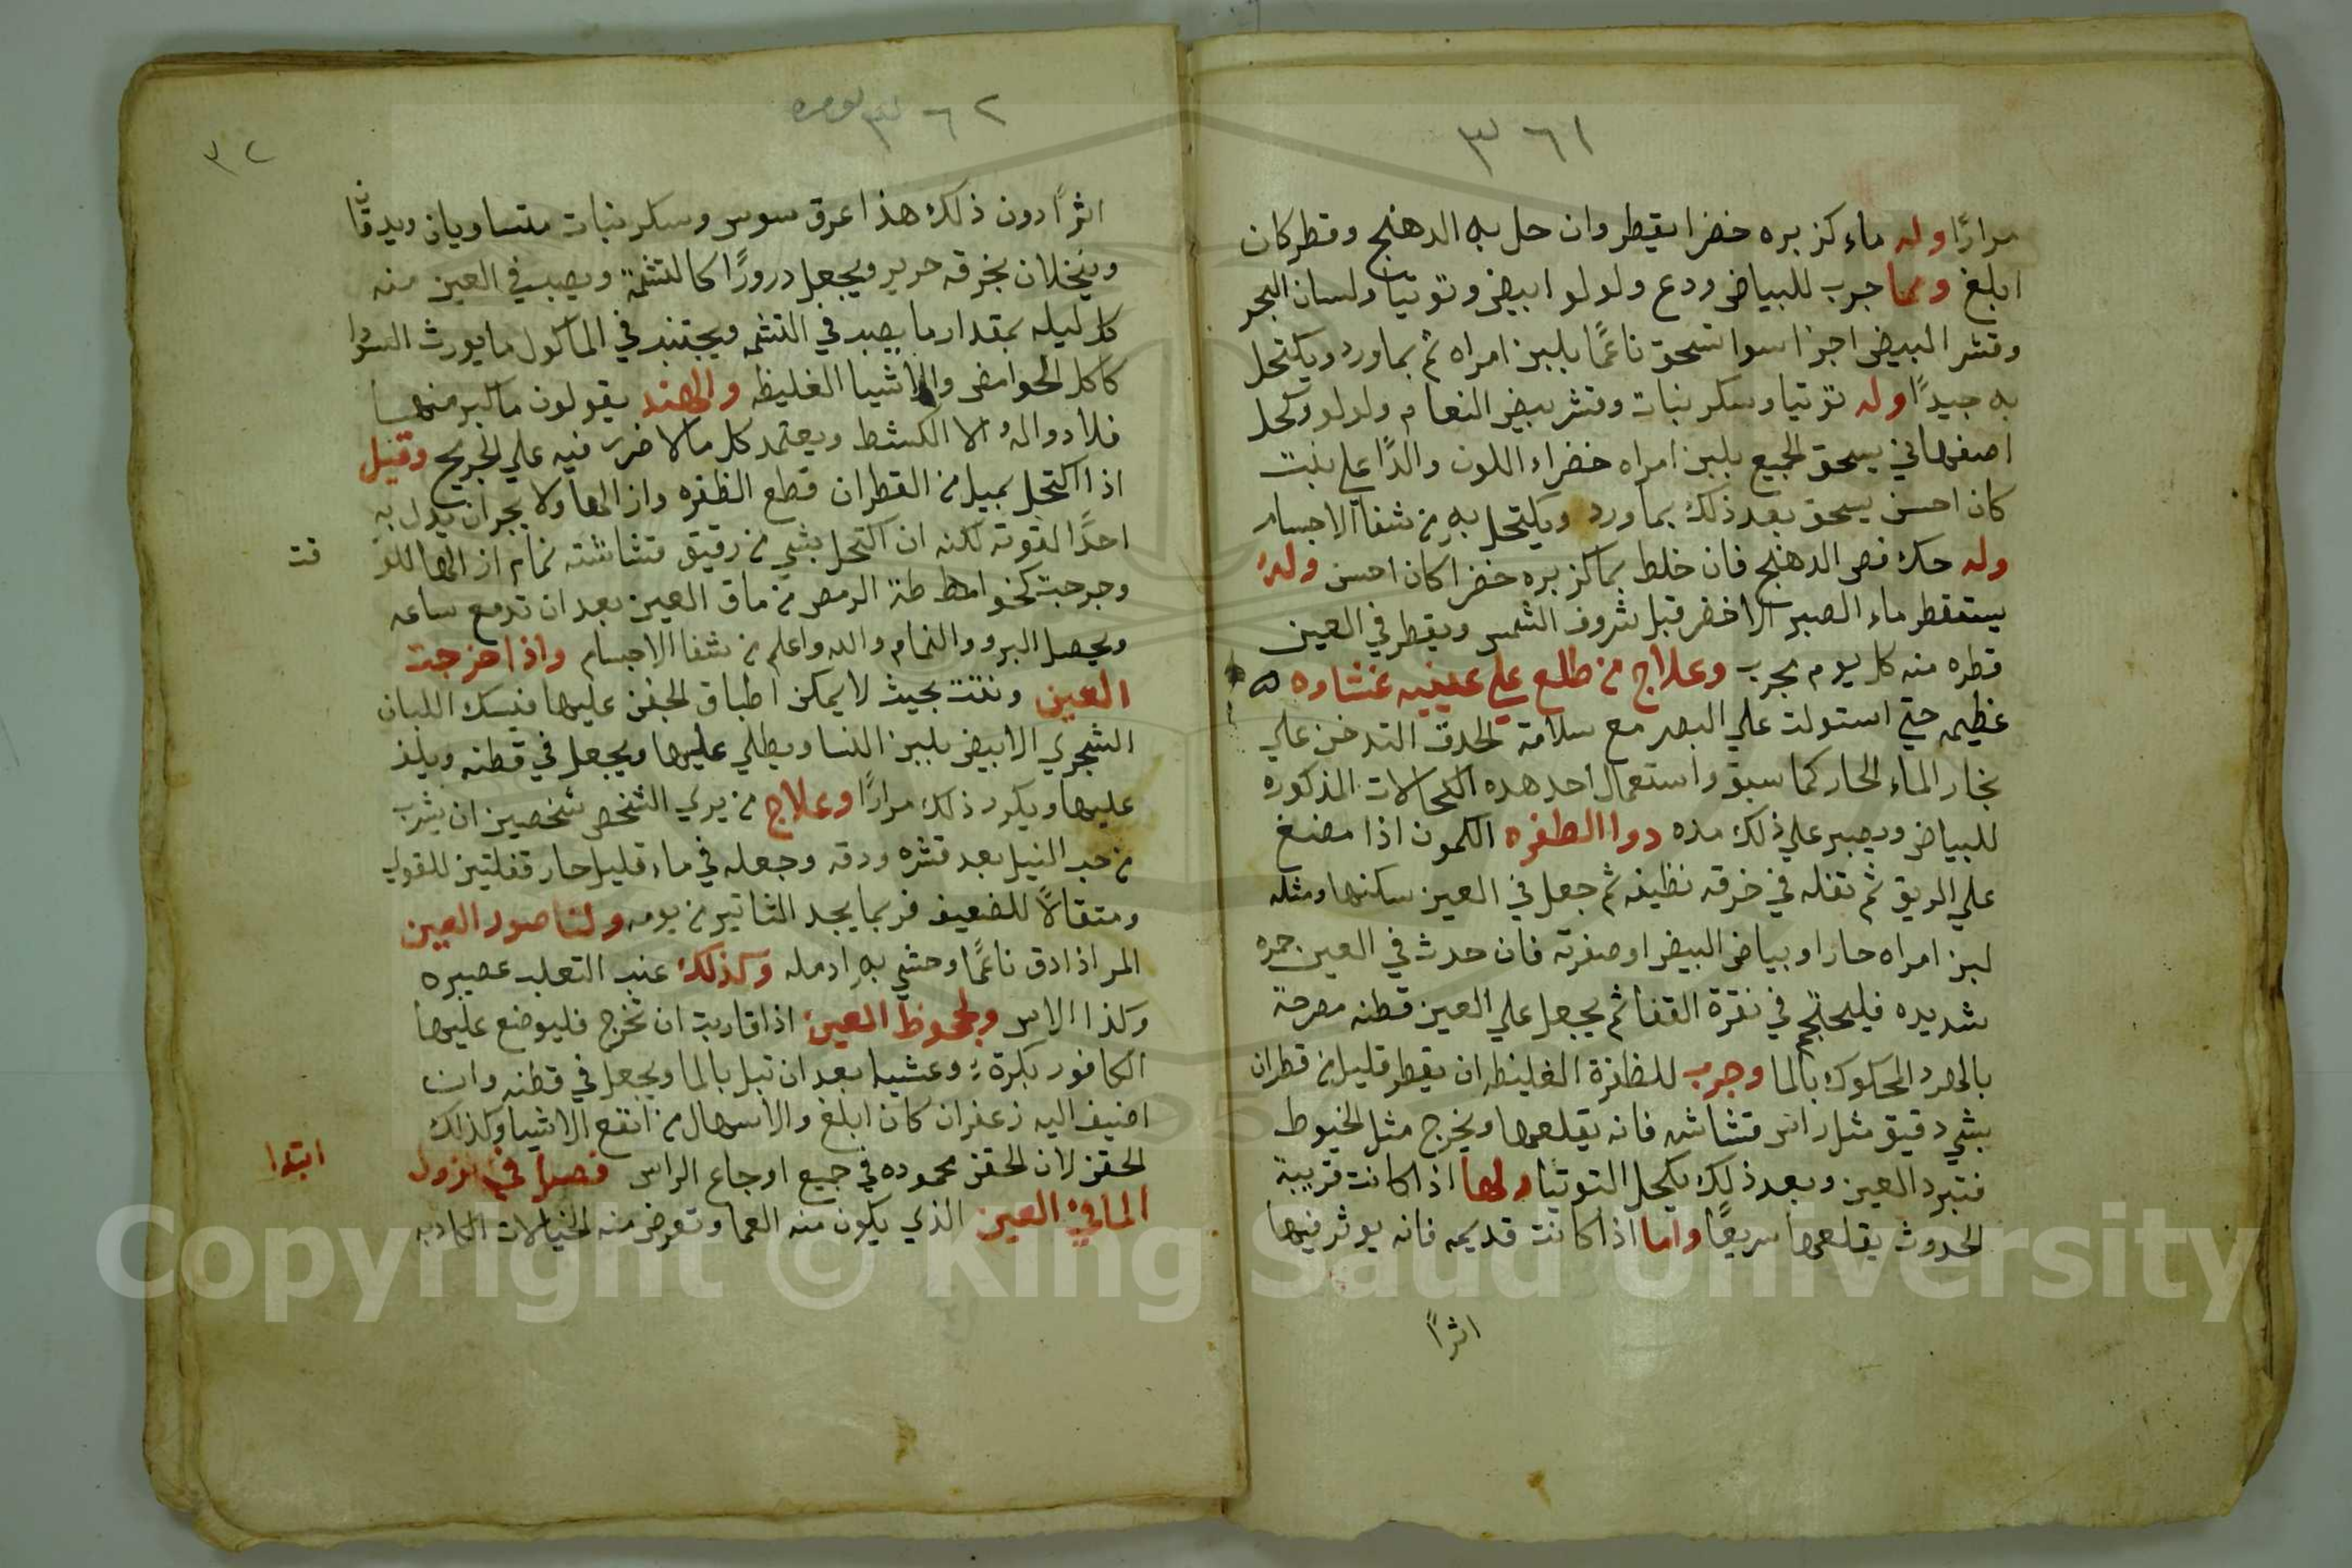 ٣٦١
مرارًا وله ماء كزبره خضرا يقطر وان حل به الدهنج وقطر كان
ابلغ ومما جرب للبياض ودع ولولو ابيض وتوتيا ولسان البحر
وقشر البيض اجزا سوا تسحق ناعمًا بلبن امراه ثم بماورد ويكتحل
به جيدًا وله توتيا وسكر نبات وقشر بيض النعام ولولو وكحل
اصفهاني يسحق الجميع بلبن امراه خضراء اللون والدًا علي بنت
كان احسن يسحق بعد ذلك بماورد ويكتحل به من شفا الاجسام
وله حك فص الدهنج فان خلط بماكزبره خضرا كان احسن وله
يستقطر ماء الصبر الاخضر قبل شروق الشمس ويقطر في العين
قطره منه كل يوم مجرب وعلاج من طلع علي عينيه غشاوه
عظيمه حتي استولت علي البصر مع سلامة الحدق التدخن علي
بخار الماء الحار كما سبق واستعمال احد هده الكحالات المذكوره
للبياض ويصبر علي ذلك مده دوا الظفره الكمون اذا مضغ
علي الريق ثم تفله في خرقه نظيفه ثم جعل في العين سكنها ومثله
لبن امراه حارا وبياض البيض او صفرته فان حدث في العين حمره
شديده فليحتجم في نقرة القفا ثم يجعل علي العين قطنه
المحكوك بالما وجرب للظفرة الغليظه ان يقطر قليل من قطران
بشي دقيق مثل راس قشاشه فانه يقلعها ويخرج مثل الخيوط
فتبرد العين وبعد ذلك يكحل التوتيا ولها اذا كانت قريبة
الحدوث يقلعها سريعًا واما اذا كانت قديمه فانه يوثر فيها
اثرًا
٣٦٢
٣٢
اثرًا دون ذلك هذا عرق سوس وسكر نبات متساويان ويدقان
وينخلان بخرقه حرير ويجعل درورًا كالتشمة ويصب في العين منه
كل ليله بمقدار ما يصب في التشمه ويجتنب في الماكول ما يورث السودا
كاكل الحوامض والاشيا الغليظه والهند يقولون ما كبر منها
فلا دوا له الا الكشط ويعتمد كل مالا ضرر فيه علي الجريح وقيل
اذا اكتحل بميل من القطران قطع الظفره وازالها ولا يجب ان يدل به
احدًا لقوته لكنه ان اكتحل بشي من رقيق قشاشة تمام ازالها للوقت
وجرجت كنحو من الرمص من ماق العين بعد ان تدمع ساعه
ويحصل البرو والتمام والله واعلم من شفا الاجسام واذا خرجت
العين ونتت بحيث لا يمكن اطباق الجفن عليها فيسك اللبان
الشجري الابيض بلبن النسا ويطلي عليها ويجعل في قطنه ويلذ
عليها ويكرر ذلك مرارًا وعلاج من يري الشخص شخصين ان يشرب
من حب النيل بعد قشره ودقه وجعله في ماء قليل حار قفلتين للقوي
ومثقالاً للضعيف فربما يجد التاثير من يومه ولناصور العين
المر اذا دق ناعمًا وحشي به ادمله وكذلك عنب الثعلب عصيره
وكذا الاس ولجحوظ العين اذا قاربت ان تخرج فليوضع عليها
الكافور بكرة وعشيا بعد ان تبل بالما ويجعل في قطنه وان
اضيف اليه زعفران كان ابلغ والاسهال من انفع الاشيا وكذلك
الحقن لان الحقن محموده في جميع اوجاع الراس فصل في نزول
ابتدا
الما في العين الذي يكون منه العما وتعرض منه الخيالات الكادبه
Copyright © King Saud University